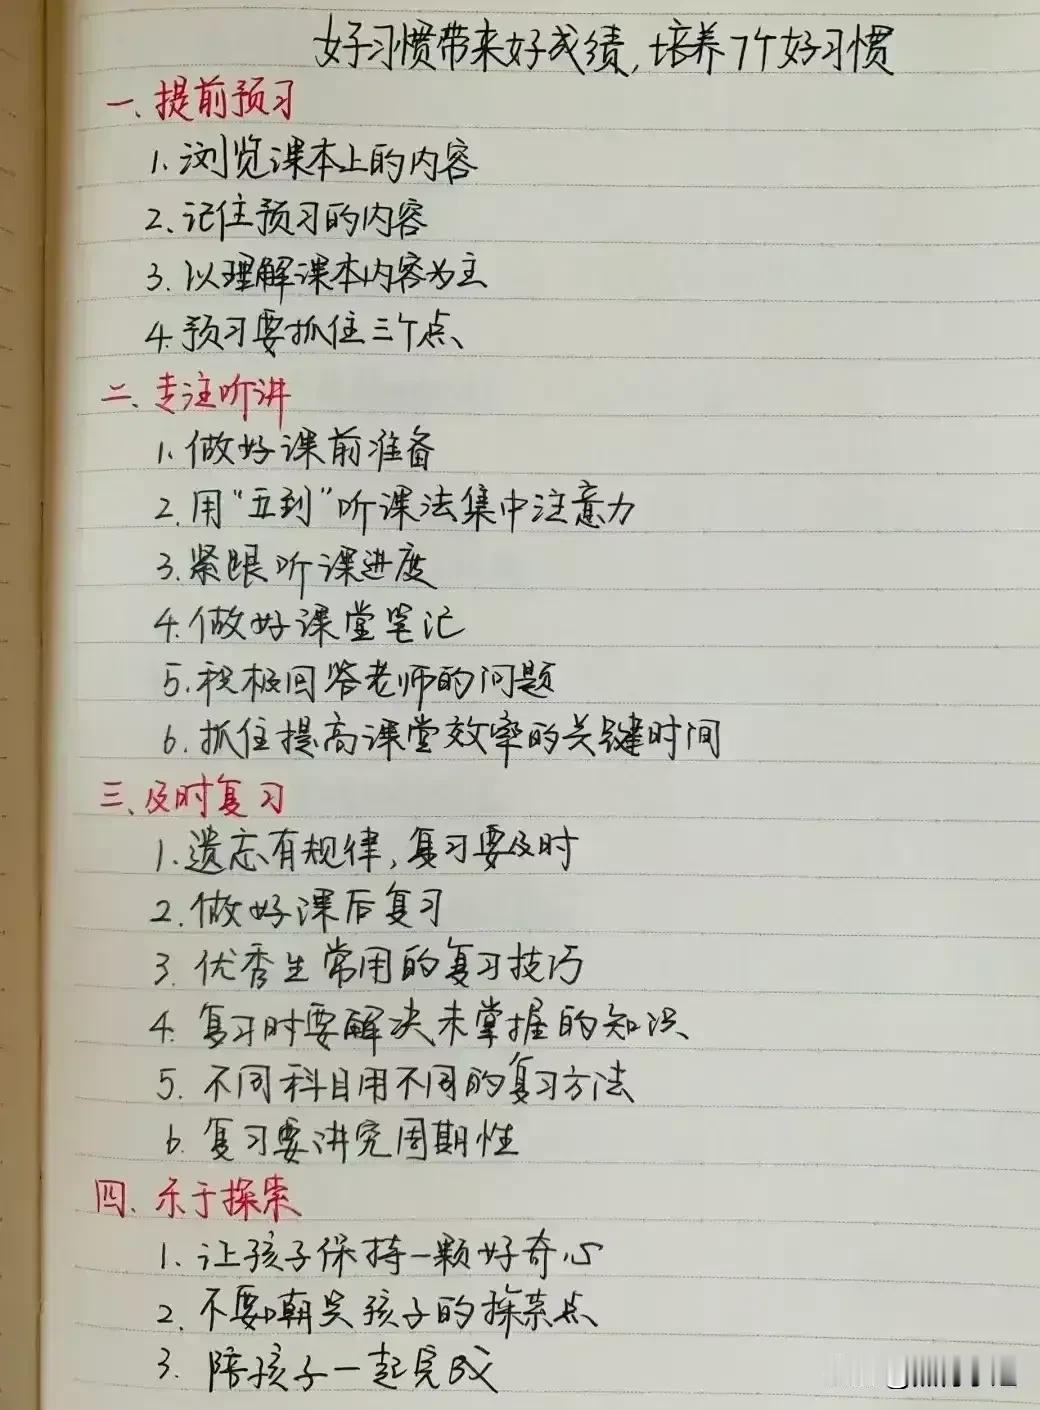 好习惯带来好成绩,培养7个好习惯
一、提前预习
1、浏览课本上的内容
2、记住预习的内容
3、以理解课本内容为主
4、预习要抓住三个点、
二、专注听讲
1、做好课前准备
2、用“五到”听课法集中注意力
3、紧跟听课进度
4、做好课堂笔记
5、积极回答老师的问题
6、抓住提高课堂效率的关键时间
三、及时复习
1、遗忘有规律,复习要及时
2、做好课后复习
3、优秀生常用的复习技巧
4、复习时要解决未掌握的知识
5、不同科目用不同的复习方法
6、复习要讲究周期性
四、乐于探索
1、让孩子保持一颗好奇心
2、不要嘲笑孩子的探索点
3、陪孩子一起完成